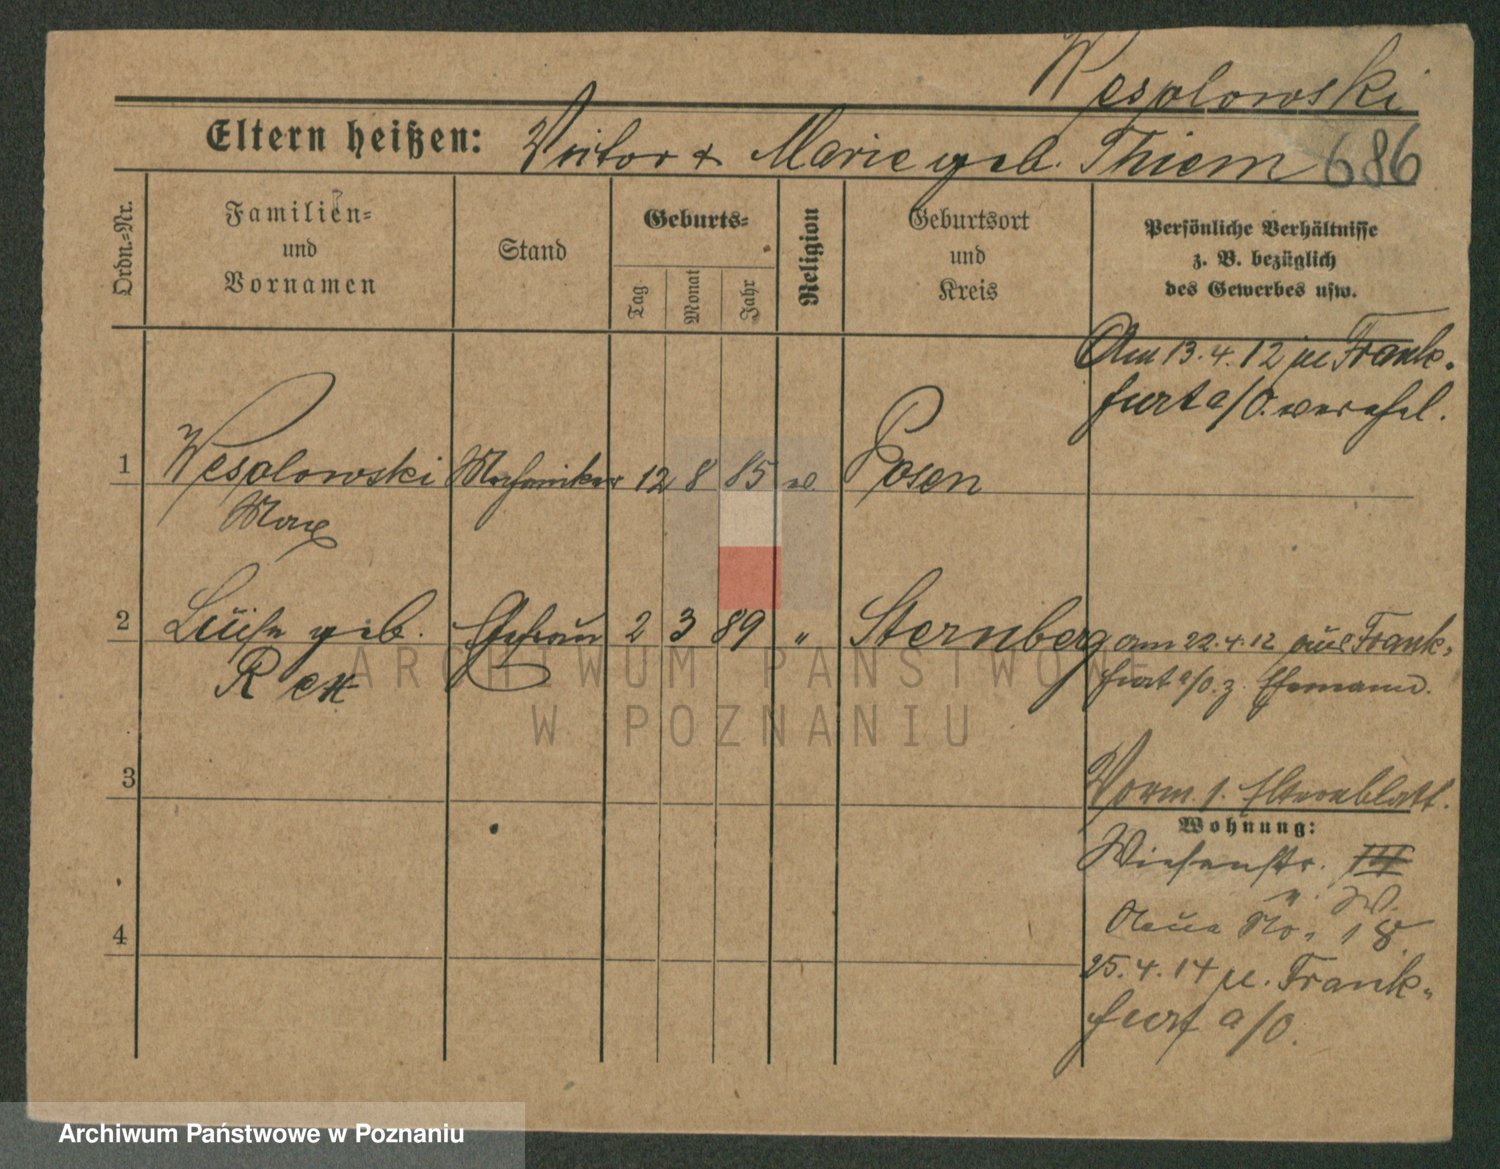 Wesolowski
Eltern heißen: Victor & Marie geb. Thiem 686
Ordn.=Nr.
Familien=
und
Vornamen
Stand
Geburts=
Tag
Monat
Jahr
Religion
Geburtsort
und
Kreis
Persönliche Verhältnisse
z. B. bezüglich
des Gewerbes usw.
Am 13.4.12 v. Frank-
furt a/O.
1 Wesolowski Mechaniker 12 8 85 Posen
Max
2 Luise geb. Ehefrau 2 3 89 " Sternberg am 22.4.12 aus Frank-
furt a/O. z. Ehemann.
3
Vorm. s. Elternblatt.
Wohnung:
Wiesenstr.
W.
Neue No. 18
4
25.4.14 v. Frank-
furt a/O.
ARCHIWUM PAŃSTWOWE
W POZNANIU
Archiwum Państwowe w Poznaniu